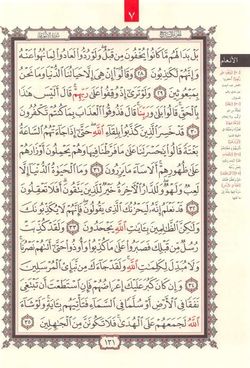 ٧
الأنعام
بَلْ بَدَا لَهُم مَّا كَانُوا۟ يُخْفُونَ مِن قَبْلُ ۖ وَلَوْ رُدُّوا۟ لَعَادُوا۟ لِمَا نُهُوا۟ عَنْهُ
وَإِنَّهُمْ لَكَـٰذِبُونَ ٢٨ وَقَالُوٓا۟ إِنْ هِىَ إِلَّا حَيَاتُنَا ٱلدُّنْيَا وَمَا نَحْنُ
بِمَبْعُوثِينَ ٢٩ وَلَوْ تَرَىٰٓ إِذْ وُقِفُوا۟ عَلَىٰ رَبِّهِمْ ۚ قَالَ أَلَيْسَ هَـٰذَا
بِٱلْحَقِّ ۚ قَالُوا۟ بَلَىٰ وَرَبِّنَا ۚ قَالَ فَذُوقُوا۟ ٱلْعَذَابَ بِمَا كُنتُمْ تَكْفُرُونَ
٣٠ قَدْ خَسِرَ ٱلَّذِينَ كَذَّبُوا۟ بِلِقَآءِ ٱللَّهِ ۖ حَتَّىٰٓ إِذَا جَآءَتْهُمُ ٱلسَّاعَةُ
بَغْتَةً قَالُوا۟ يَـٰحَسْرَتَنَا عَلَىٰ مَا فَرَّطْنَا فِيهَا وَهُمْ يَحْمِلُونَ أَوْزَارَهُمْ
عَلَىٰ ظُهُورِهِمْ ۚ أَلَا سَآءَ مَا يَزِرُونَ ٣١ وَمَا ٱلْحَيَوٰةُ ٱلدُّنْيَآ إِلَّا
لَعِبٌ وَلَهْوٌ ۖ وَلَلدَّارُ ٱلْـَٔاخِرَةُ خَيْرٌ لِّلَّذِينَ يَتَّقُونَ ۗ أَفَلَا تَعْقِلُونَ
٣٢ قَدْ نَعْلَمُ إِنَّهُۥ لَيَحْزُنُكَ ٱلَّذِى يَقُولُونَ ۖ فَإِنَّهُمْ لَا يُكَذِّبُونَكَ
وَلَـٰكِنَّ ٱلظَّـٰلِمِينَ بِـَٔايَـٰتِ ٱللَّهِ يَجْحَدُونَ ٣٣ وَلَقَدْ كُذِّبَتْ
رُسُلٌ مِّن قَبْلِكَ فَصَبَرُوا۟ عَلَىٰ مَا كُذِّبُوا۟ وَأُوذُوا۟ حَتَّىٰٓ أَتَىٰهُمْ نَصْرُنَا ۚ
وَلَا مُبَدِّلَ لِكَلِمَـٰتِ ٱللَّهِ ۚ وَلَقَدْ جَآءَكَ مِن نَّبَإِى۟ ٱلْمُرْسَلِينَ
٣٤ وَإِن كَانَ كَبُرَ عَلَيْكَ إِعْرَاضُهُمْ فَإِنِ ٱسْتَطَعْتَ أَن تَبْتَغِىَ
نَفَقًا فِى ٱلْأَرْضِ أَوْ سُلَّمًا فِى ٱلسَّمَآءِ فَتَأْتِيَهُم بِـَٔايَةٍ ۚ وَلَوْ شَآءَ
ٱللَّهُ لَجَمَعَهُمْ عَلَى ٱلْهُدَىٰ ۚ فَلَا تَكُونَنَّ مِنَ ٱلْجَـٰهِلِينَ ٣٥
١٣١